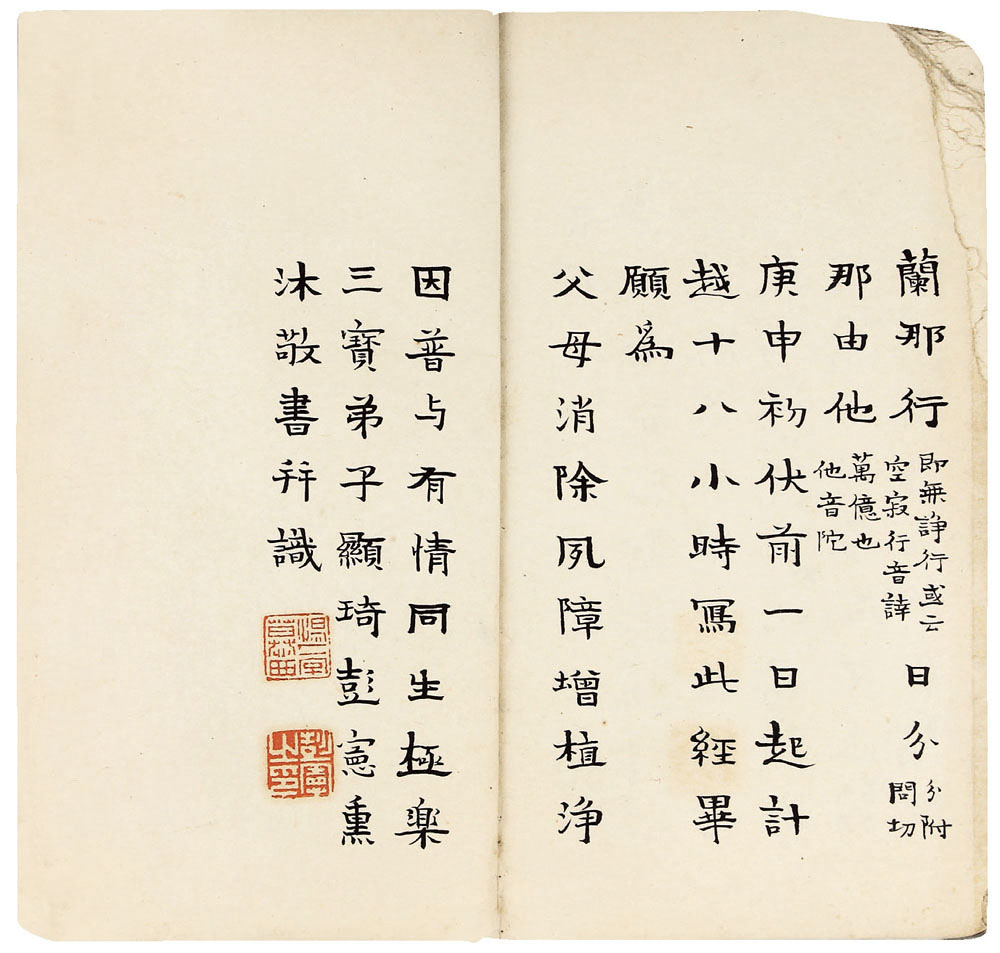 蘭那行
即無諍行或云
空寂行音
日分
分附
問切
那由他
萬億也
他音陀
庚申初伏前一日起計
越十八小時冩此經畢
願爲
父母消除夙障增植浄
因普与有情同生極楽
三寶弟子顯琦彭憲熏
沐敬書并識